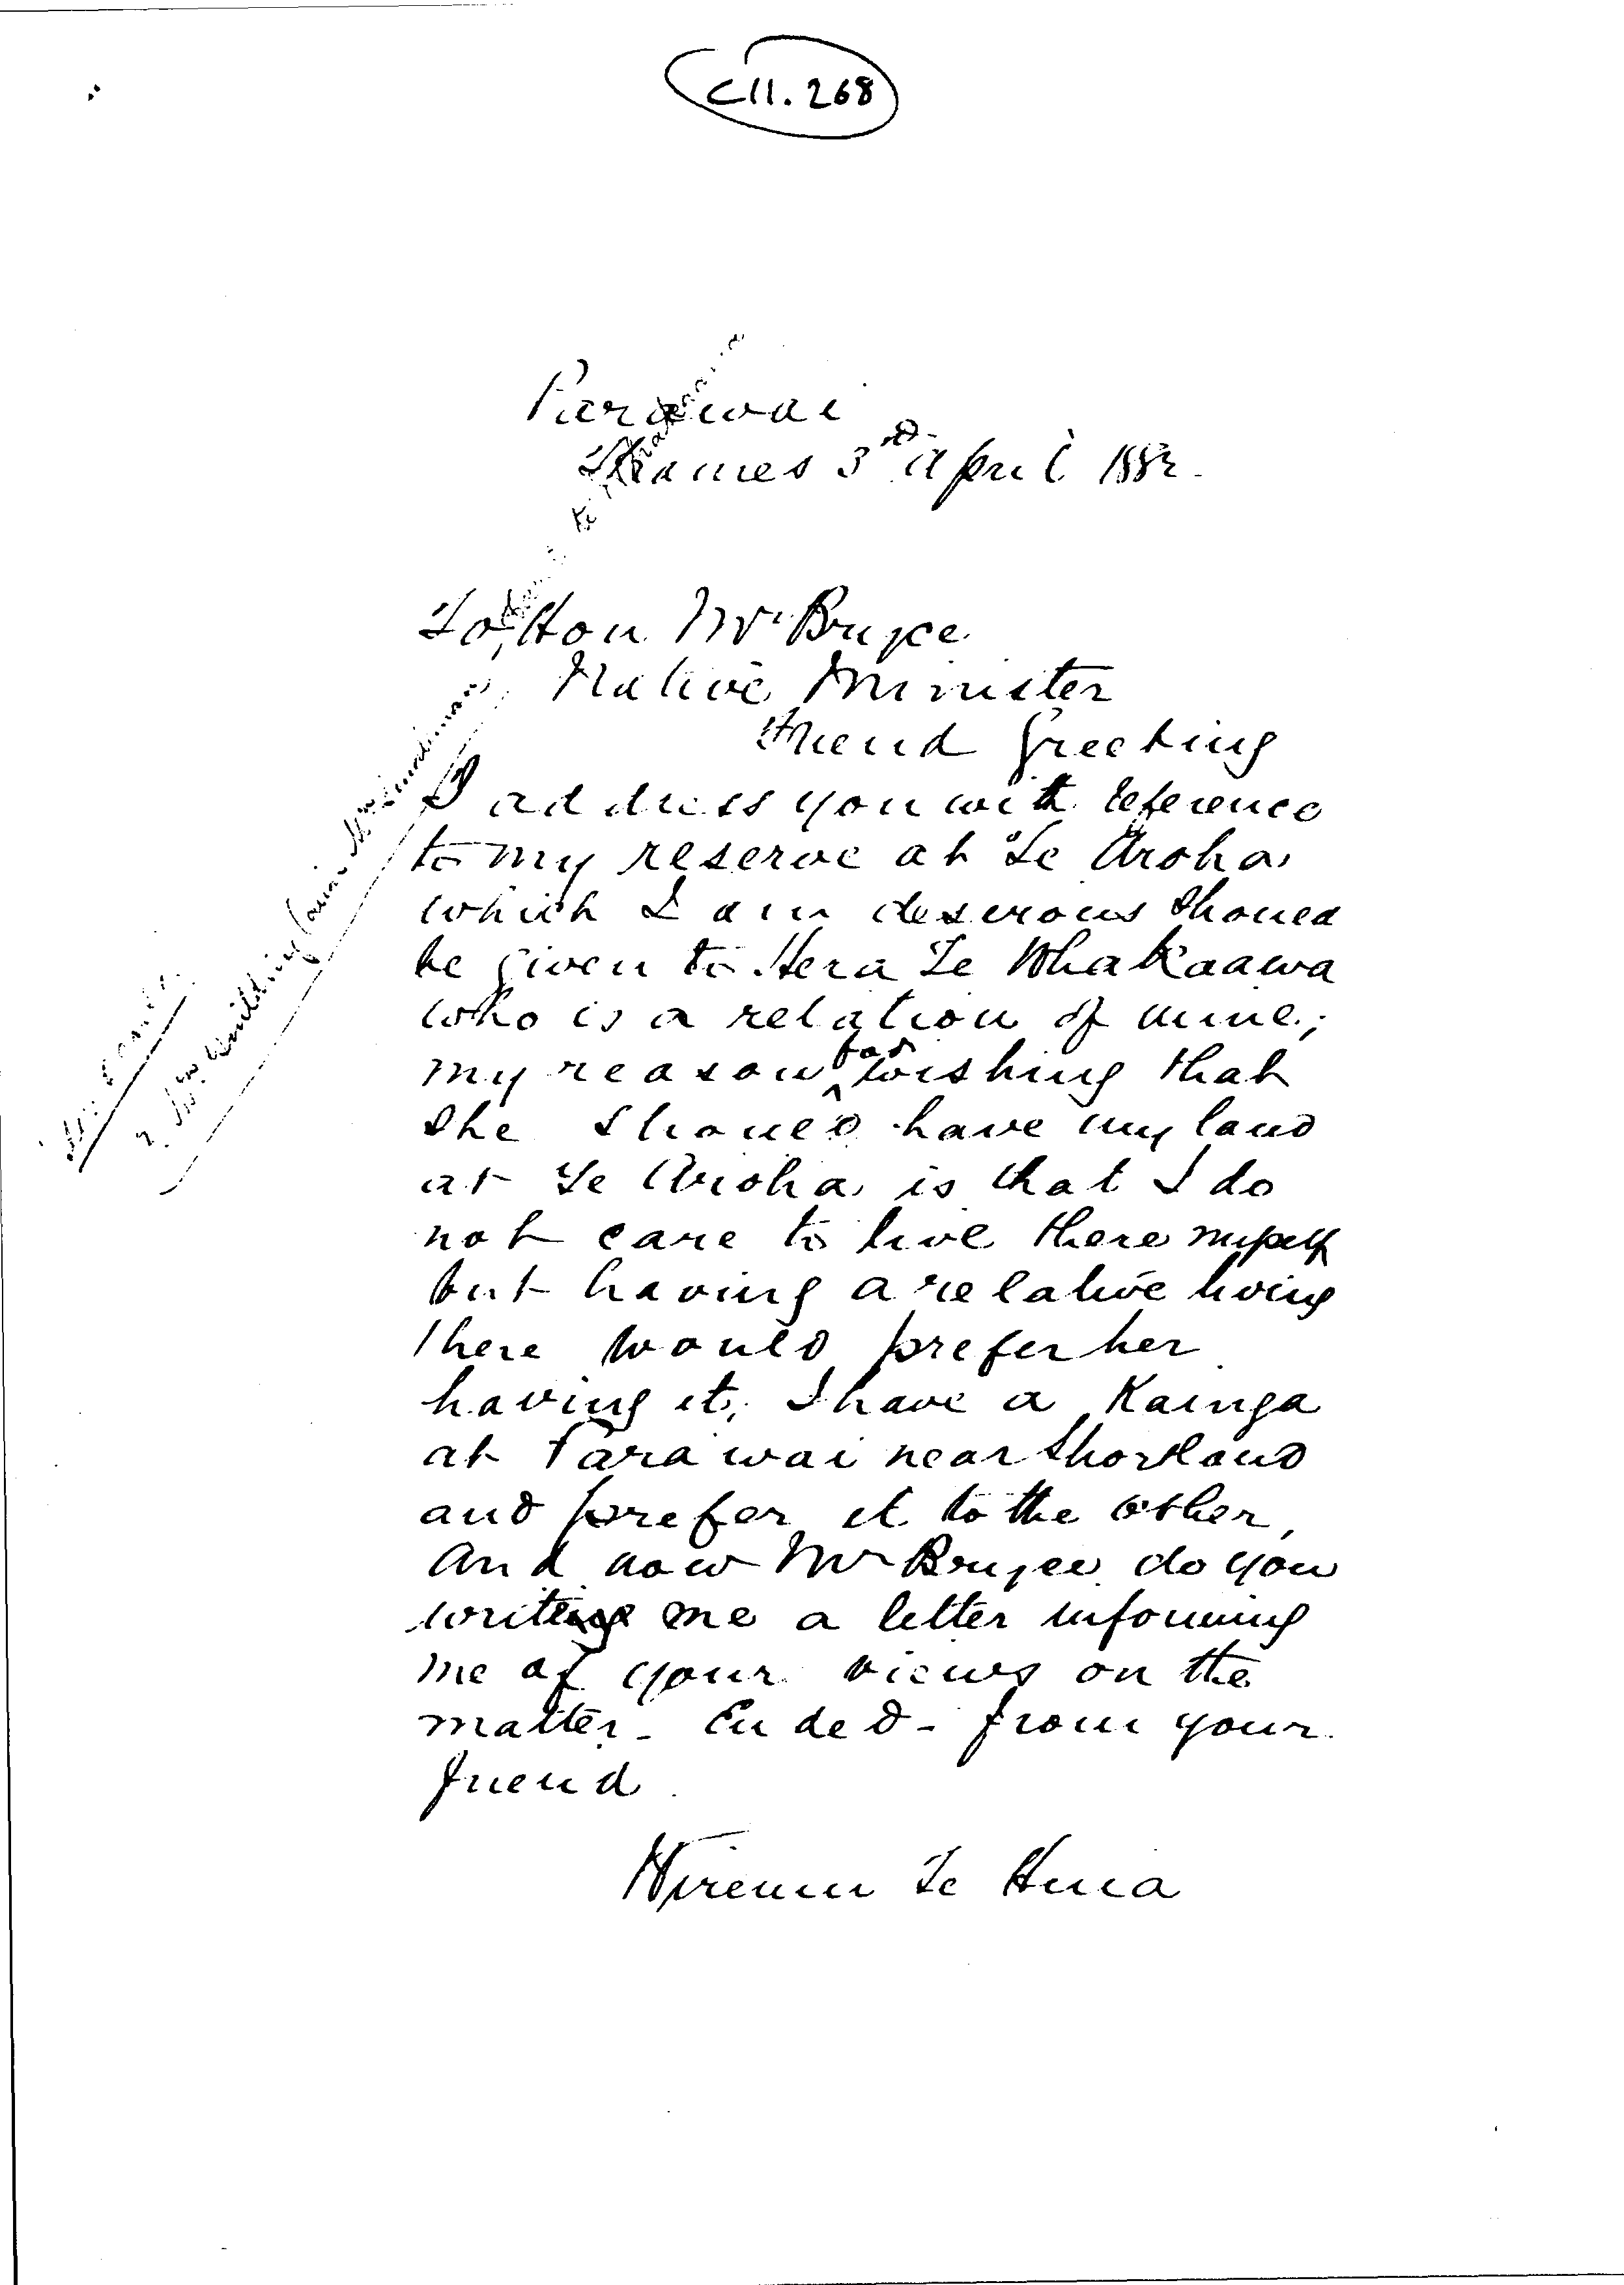 C11.268
Parawai
Thames 3rd April 1882.
To, Hon Mr Bryce
Native Minister
Friend Greeting
I address you with reference
to my reserve at Te Aroha
which I am deserous should
be given to Hera Te Whakaawa
who is a relation of mine;
my reason for wishing that
she should have my land
at Te Aroha is that I do
not care to live there myself
but having a relative living
there would prefer her
having it, I have a Kainga
at Parawai near Shortland
and prefer it to the other,
And now Mr Bryce do you
write me a letter informing
me of your views on the
matter - Ended - from your
friend
Wiremu Te Huia